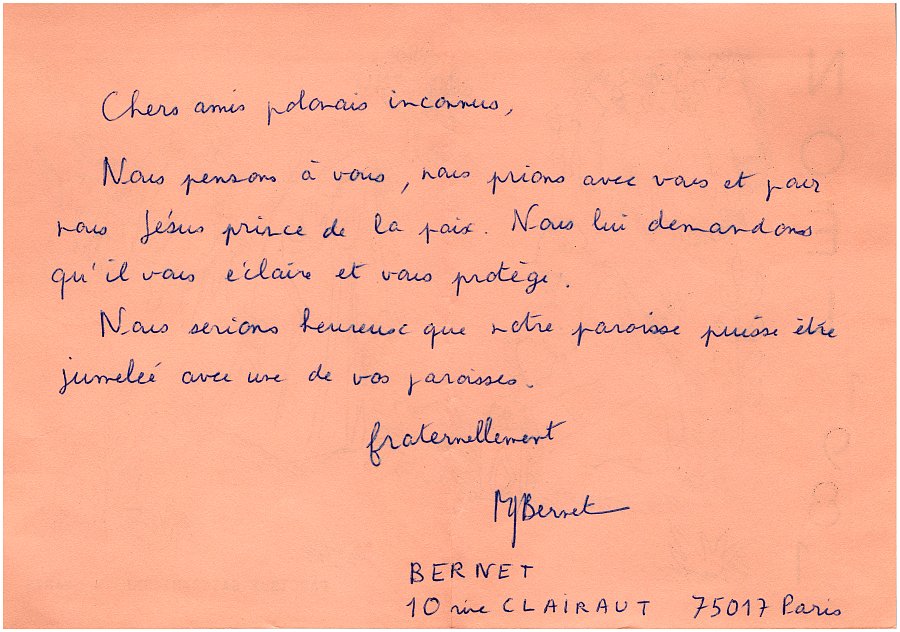 Chers amis polonais inconnus,
Nous pensons à vous, nous prions avec vous et pour
nous Jésus prince de la paix. Nous lui demandons
qu'il vous éclaire et vous protège.
Nous serions heureux que notre paroisse puisse être
jumelée avec une de vos paroisses.
fraternellement
MJBernet
BERNET
10 rue CLAIRAUT 75017 Paris